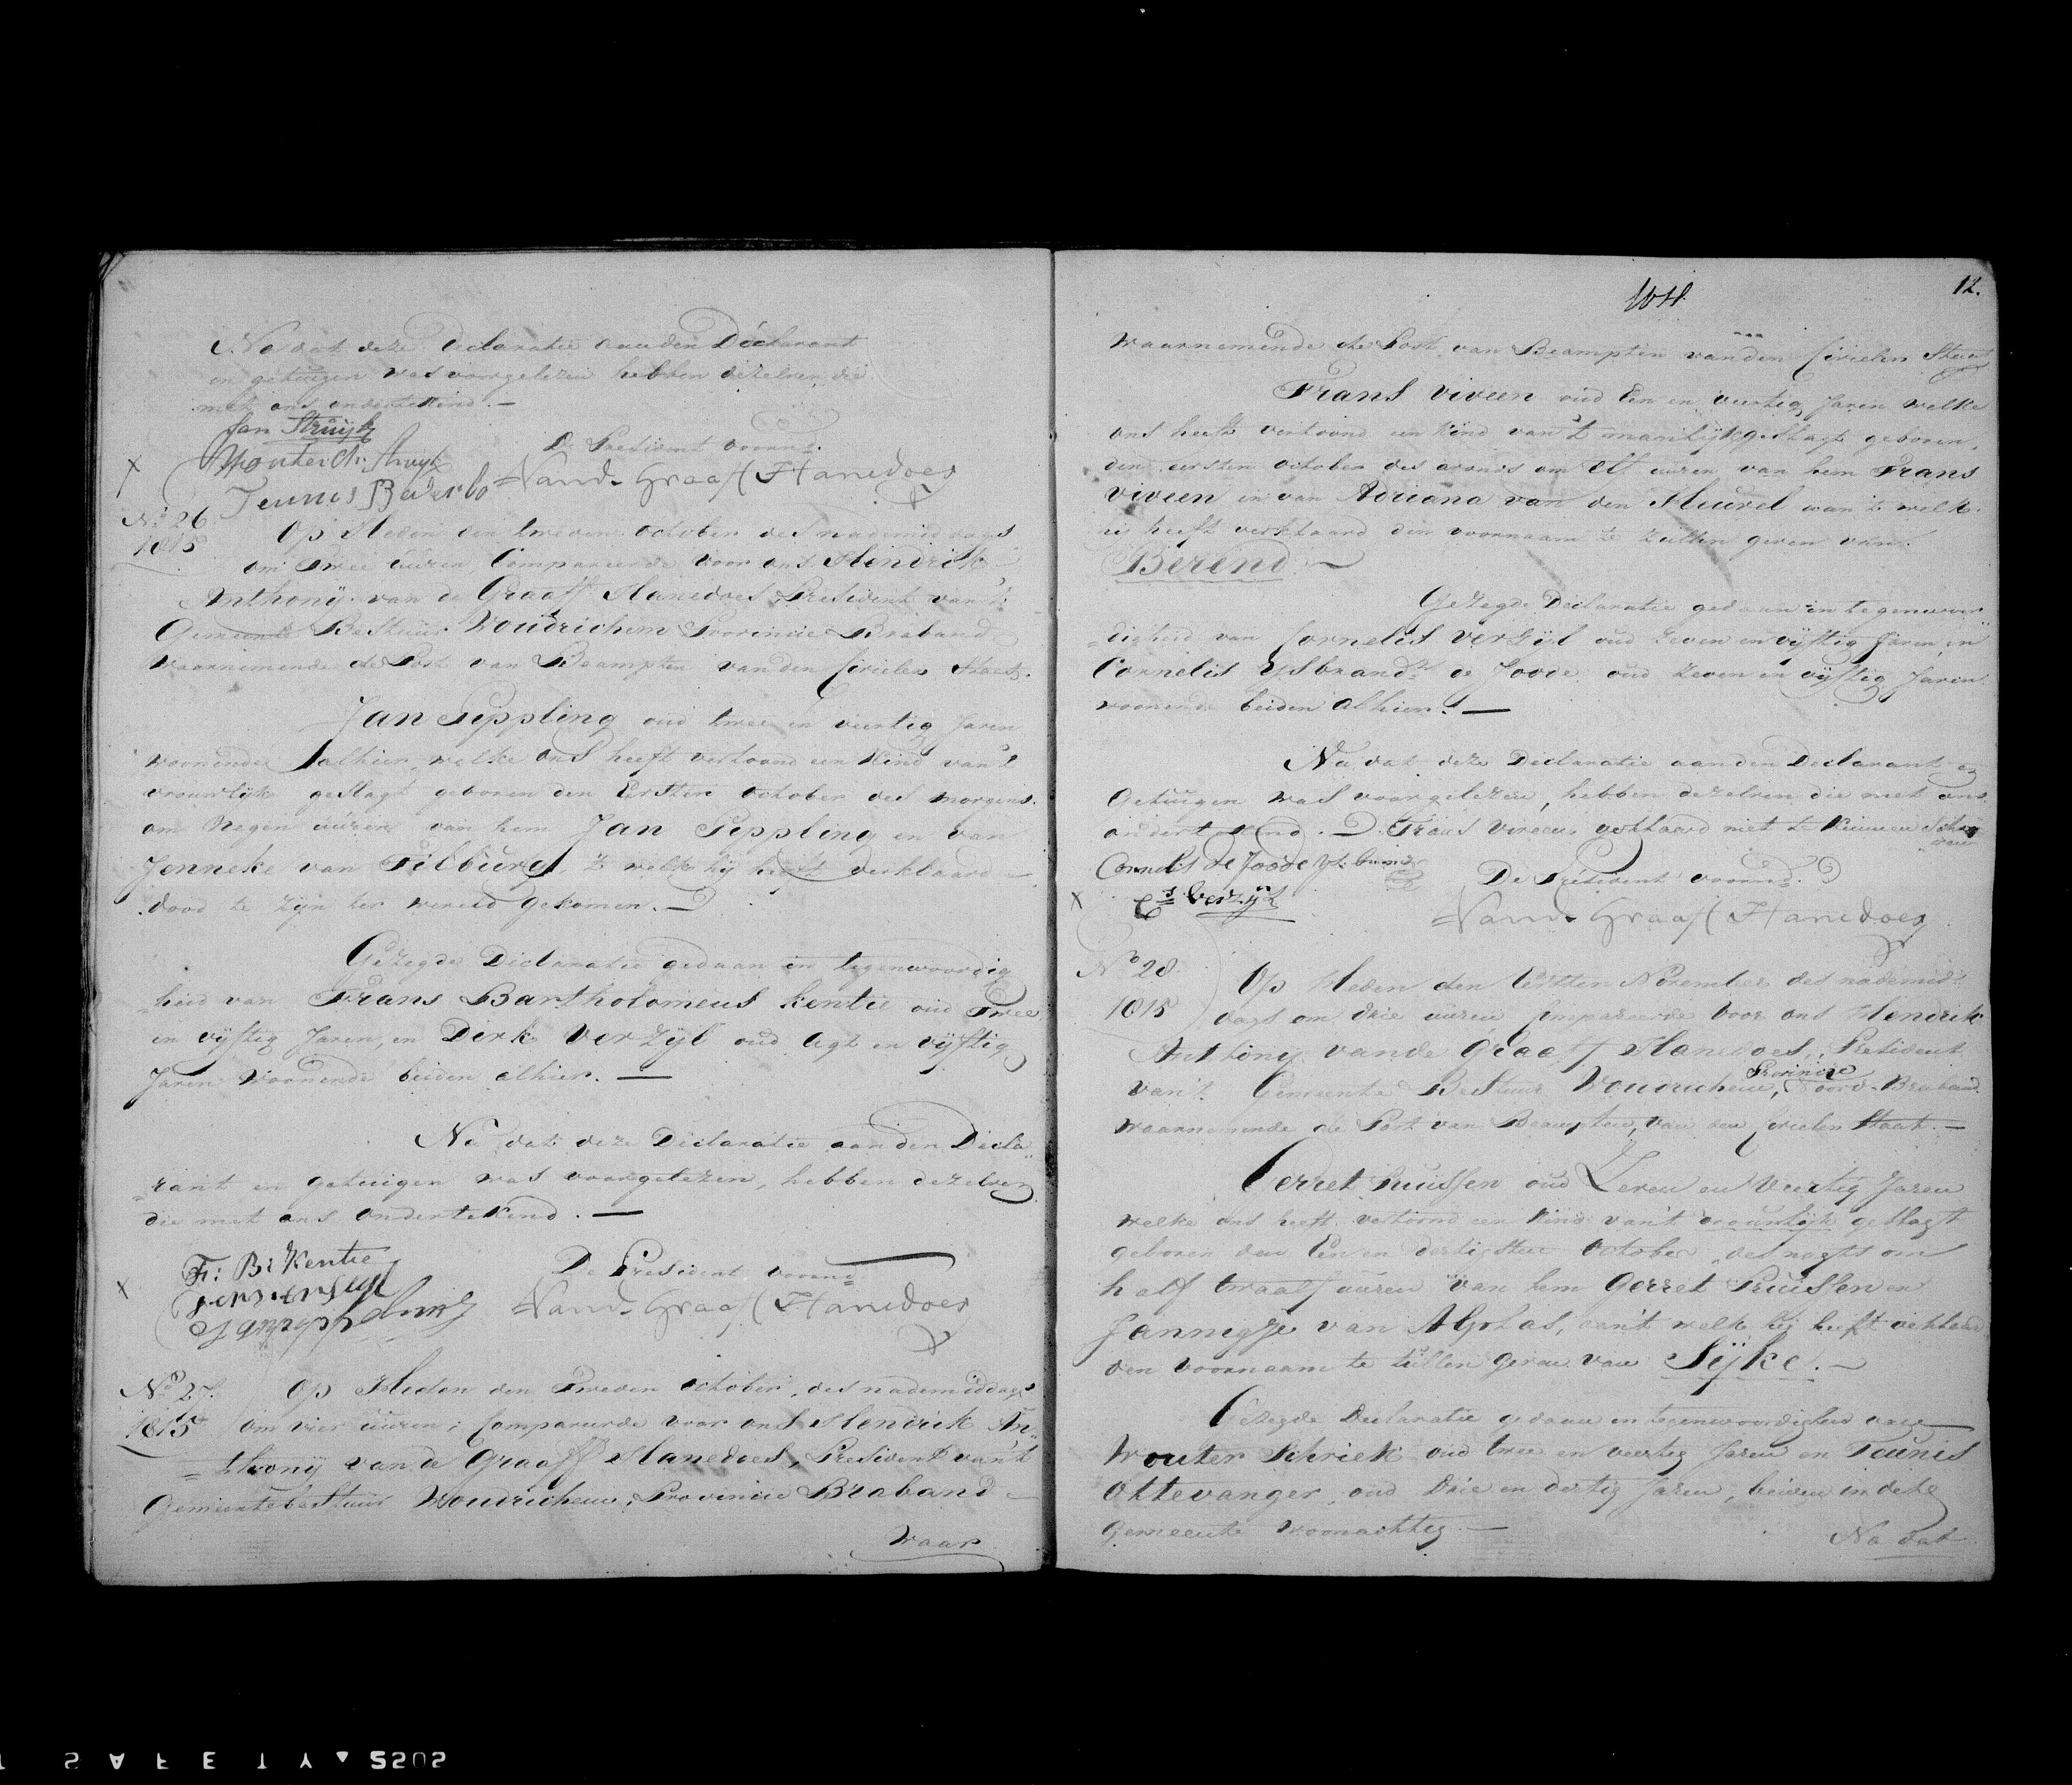 Na dat deze declaratie aan den Declarant
en getuigen was voorgelezen hebben dezelven die
met ons ondertekend. —
Jan Struijk
Wouter Struyk
De President voornd.
Teunis Baerbo
Vand. Graaff Hanedoes
No. 26
1815
Op Heden den tweeden october des nademiddags
om Twee uuren, Compareerde voor ons Hendrik
Anthonij van de Graaff Hanedoes President van 't
Gemeente Bestuur Woudrichem Provincie Braband
waarnemende de Post van Beampten van den Civielen Staat.
Jan Peppling oud twee en veertig Jaren
woonende alhier, welke ons heeft vertoond een kind van 't
vrouwlijk geslagt geboren den Eersten october des morgens
om Negen uuren van hem Jan Peppling en van
Jenneke van Tilburg, 't welk hij heeft verklaard
dood te zijn ter wereld gekomen. —
Gezegde Declaratie gedaan in tegenwoordig
=heid van Frans Bartholomeus Kentie oud Twee
en vijftig Jaren, en Dirk Verzijl oud Agt en vijftig
Jaren Woonende beiden alhier. —
Na dat deze Declaratie aan den Decla
=rant en getuigen was voorgelezen, hebben dezelven
die met ons ondertekend. —
F: B: Kentie
De President voornd
Vand. Graaff Hanedoes
No. 27.
1815
Op Heden den Tweeden october, des nademiddags
om vier uuren; Compareerde voor ons Hendrik An
=thonij van de Graaff Hanedoes, President van 't
Gemeentebestuur Woudrichem, Provincie Braband
Waar
12.
waarnemende de Post van Beampten van den Civielen Staat
Frans Viveen oud Een en veertig Jaren welke
ons heeft vertoond een kind van 't manlijk geslagt geboren,
den eersten october des avonds om Elf uuren van hem Frans
Viveen en van Adriana van den Heuvel aan 't welk
hij heeft verklaard den voornaam te zullen geven van
Berend. —
Gezegde Declaratie gedaan in tegenwoor
=digheid van Cornelis Verzijl oud Zeven en vijftig Jaren, en
Cornelis IJsbrandsz de Joode oud zeven en vijftig Jaren
woonende beiden alhier. —
Na dat deze Declaratie aan den Declarant en
Getuigen was voorgelezen, hebben dezelven die met ons
ondertekend. Frans Viveen verklaard niet te kunnen schry
ven
Cornelis de Joode
De President voornd.
Cs. Verzijl
Vand. Graaff Hanedoes
No 28.
1815
Op Heden den Eersten November des nademid
dags om drie uuren Compareerde voor ons Hendrik
Anthonij van de Graaff Hanedoes, President
Provincie
van 't Gemeente Bestuur Woudrichem, Noord-Braband
waarnemende de Post van Beampten, van den Civielen Staat. —
Gerret Pruissen oud Zeven en Veertig Jaren
welke ons heeft vertoond een kind van 't vrouwlijk geslagt
geboren den Een en dertigsten October, des nagts om
half twaalf uuren van hem Gerret Pruissen en
Jannigje van Alphas, aan 't welk hij heeft verklaard
den voornaam te zullen geven van Sijke. —
Gezegde Declaratie gedaan in tegenwoordigheid van
Wouter Schriek oud twee en veertig Jaren en Teunis
Ottevanger, oud Drie en dertig Jaren, beiden in deze
gemeente woonachtig. —
Na dat
SAFETY 5202